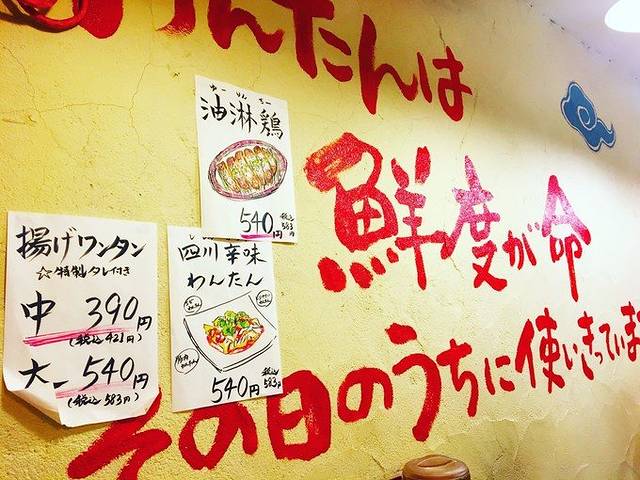 わんたんは
鮮度が命
その日のうちに使いきっていま
ゆーりんちー
油淋鶏
540円
税込
583円
揚げワンタン
☆特製タレ付き
中 390円
(税込 421円)
大 540円
(税込 583円)
四川辛味
わんたん
540円
税込
583円